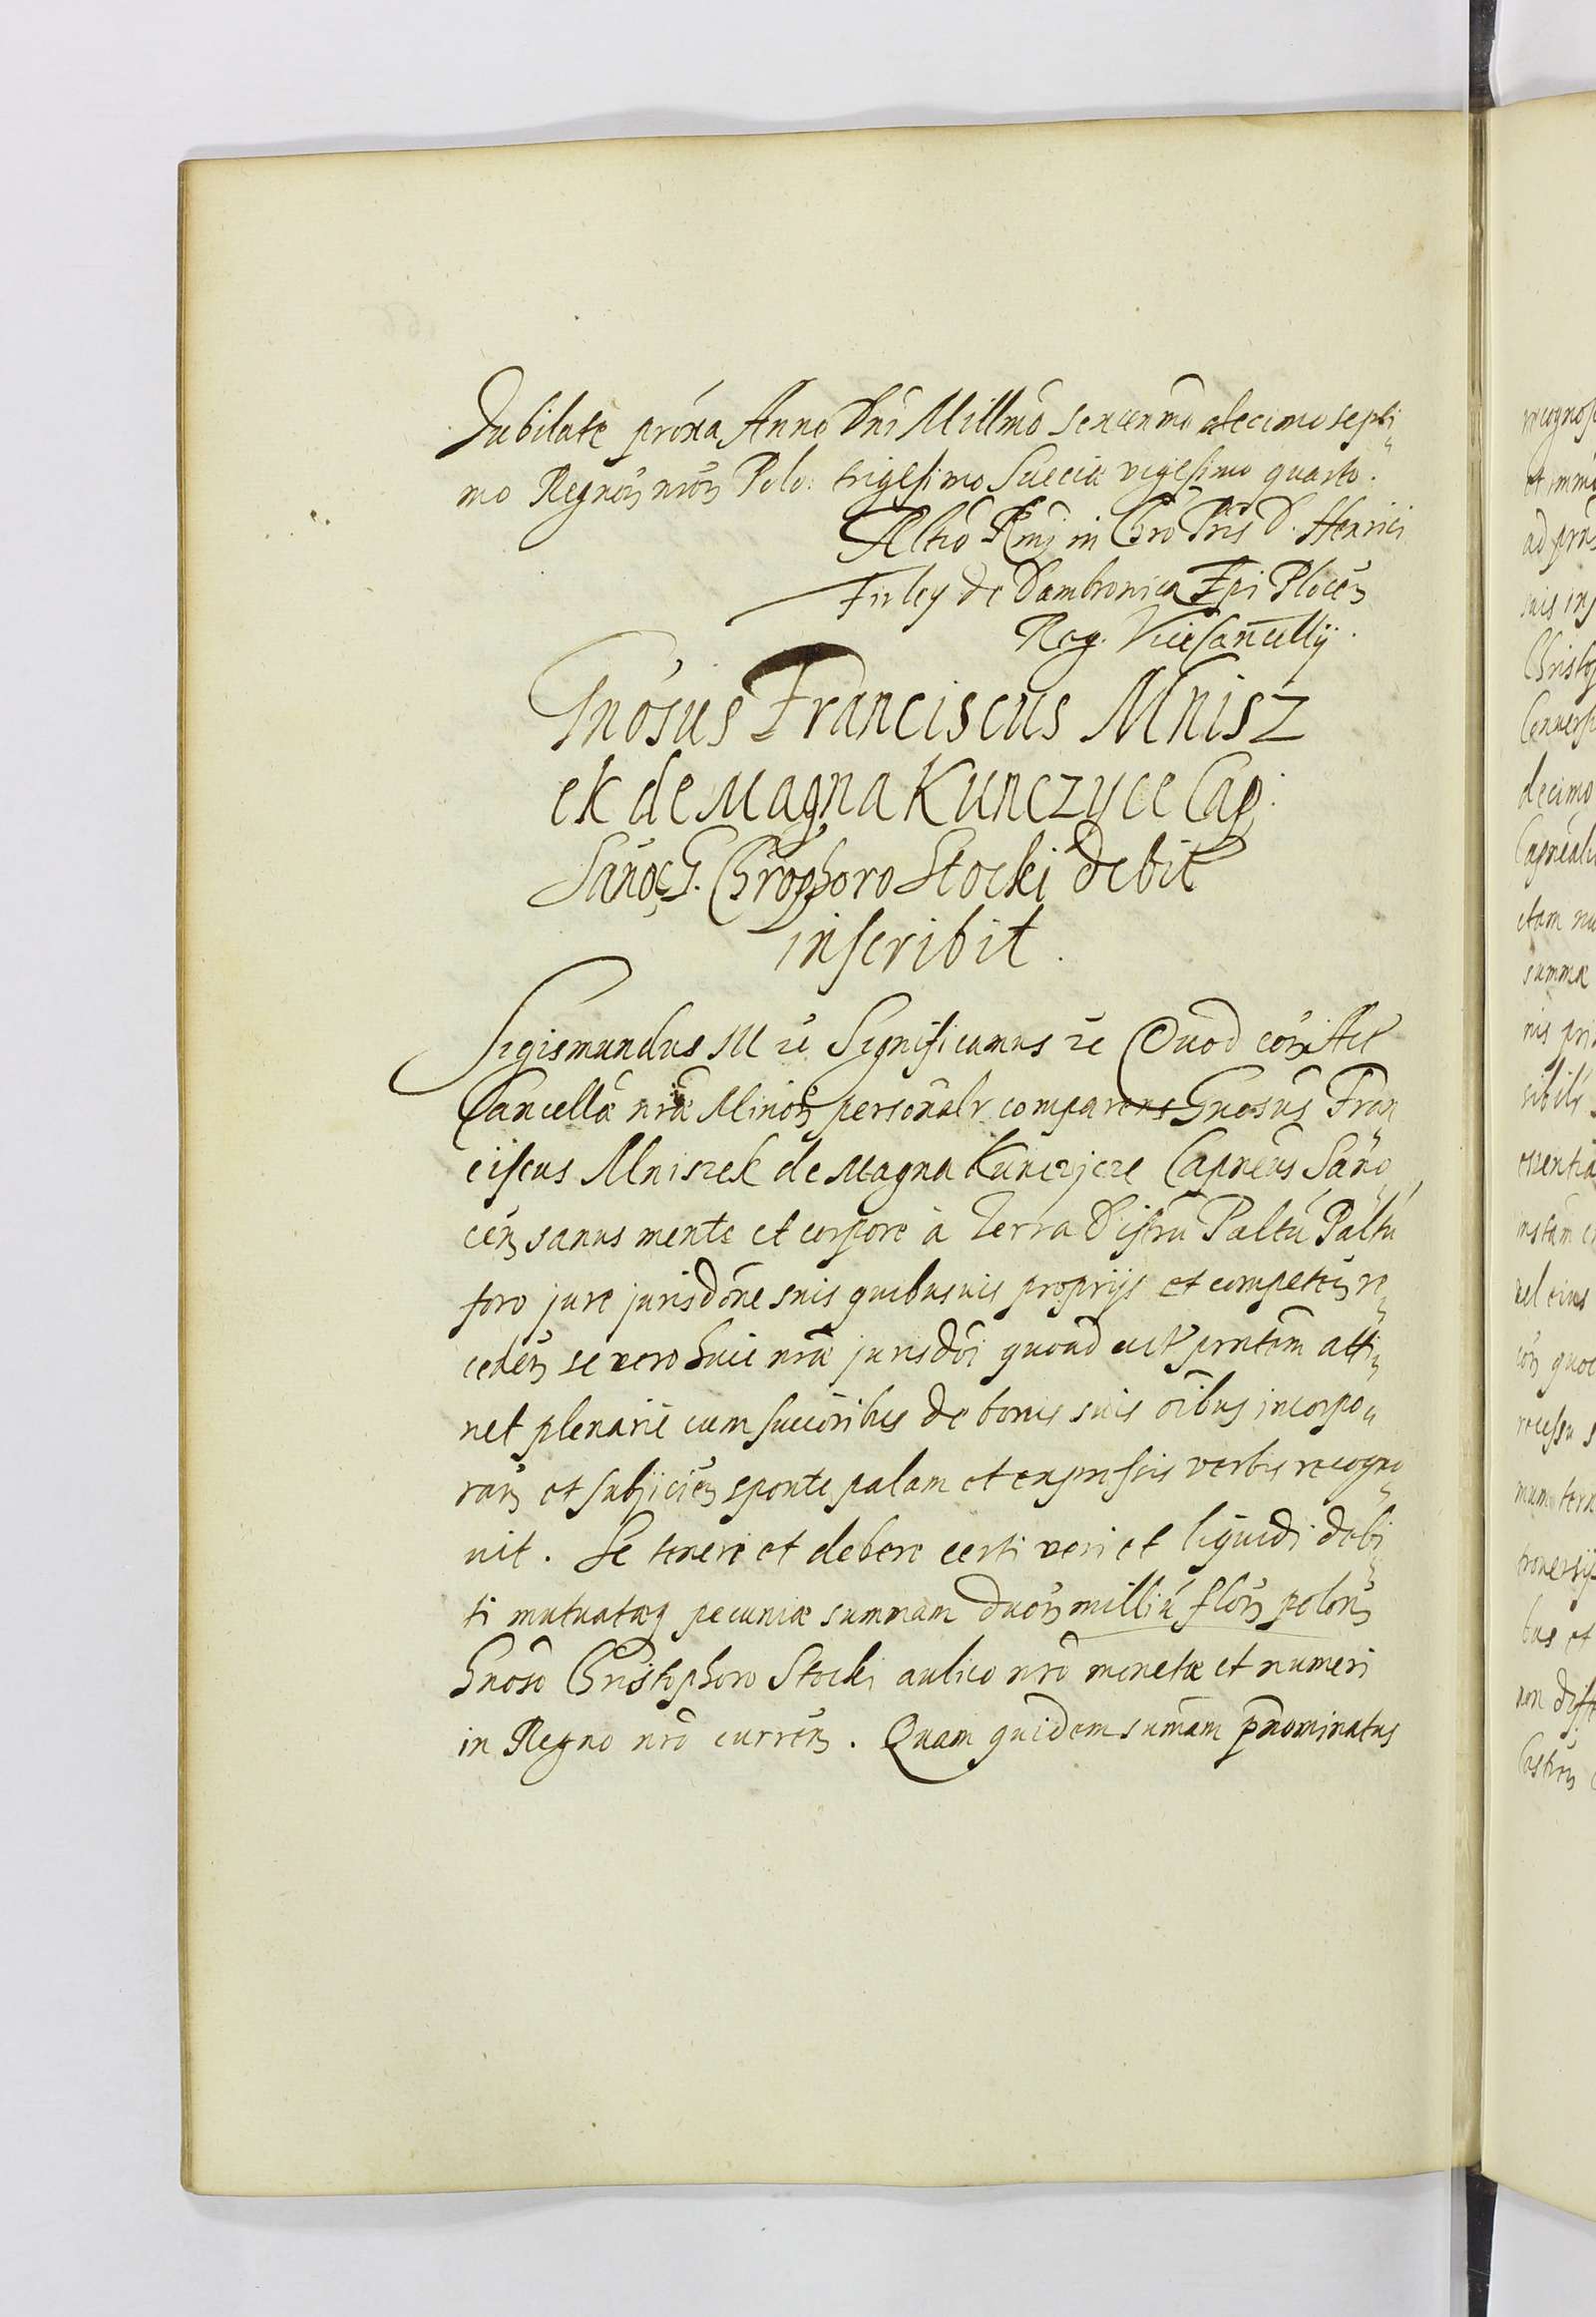 Jubilate próxa Anno Dni Millmo sexcenmo decimo septi„
mo Regnoȝ nroȝ Polo: trigesimo Sueciæ vigesimo quarto.
Reltio Rmi in Chro Pris D. Henrici
Firley de Dambrowica Epi Plocen
Reg. ViceCancellij.
Gnosus Franciscus Mnisz
ek de Magna Kunczyce Cap:
Sanoc G. Chrophoro Stocki debit
inscribit.
Sigismundus III &c Significamus &c Quod cora Act
Cancellæ nræ Minoȝ personalr comparens Gnosus Fran„
ciscus Mniszek de Magna Kunczyce Capneus Sano„
cen sanus mente et corpore à Terra Distru Paltu Paltu
foro jure jurisdone suis quibusuis proprijs et competen re„
ceden se vero huic nræ jurisdoi quoad act prntem atti„
net plenarie cum succoribus de bonis suis oibus incorpo„
ran et subijcien sponte palam et expressis verbis recogno„
uit. Se teneri et debere certi veri et liquidi debi„
ti mutuatæq pecuniæ summam duoȝ milliu floȝ polon
Gnoso Christophoro Stocki aulico nro monetæ et numeri
in Regno nro curren. Quam quidem sumam pnominatus